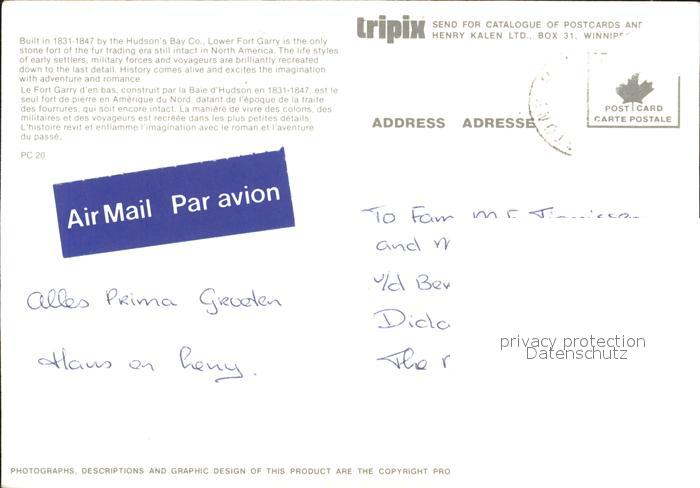 Built in 1831-1847 by the Hudson's Bay Co., Lower Fort Garry is the only
stone fort of the fur trading era still intact in North America. The life styles
of early settlers, military forces and voyageurs are brilliantly recreated
down to the last detail. History comes alive and excites the imagination
with adventure and romance.
Le Fort Garry d'en bas, construit par la Baie d'Hudson en 1831-1847, est le
seul fort de pierre en Amérique du Nord, datant de l'époque de la traite
des fourrures, qui soit encore intact. La manière de vivre des colons, des
militaires et des voyageurs est recréée dans les plus petites détails.
L'histoire revit et enflamme l'imagination avec le roman et l'aventure
du passé.
PC 20
tripix SEND FOR CATALOGUE OF POSTCARDS AND
HENRY KALEN LTD., BOX 31, WINNIP
POST CARD
CARTE POSTALE
ADDRESS ADRESSE
Air Mail Par avion
Alles Prima Groeten
Hans en Leny.
To Fam
and
v/d Ber
Dida
The
privacy protection
Datenschutz
PHOTOGRAPHS, DESCRIPTIONS AND GRAPHIC DESIGN OF THIS PRODUCT ARE THE COPYRIGHT PRO